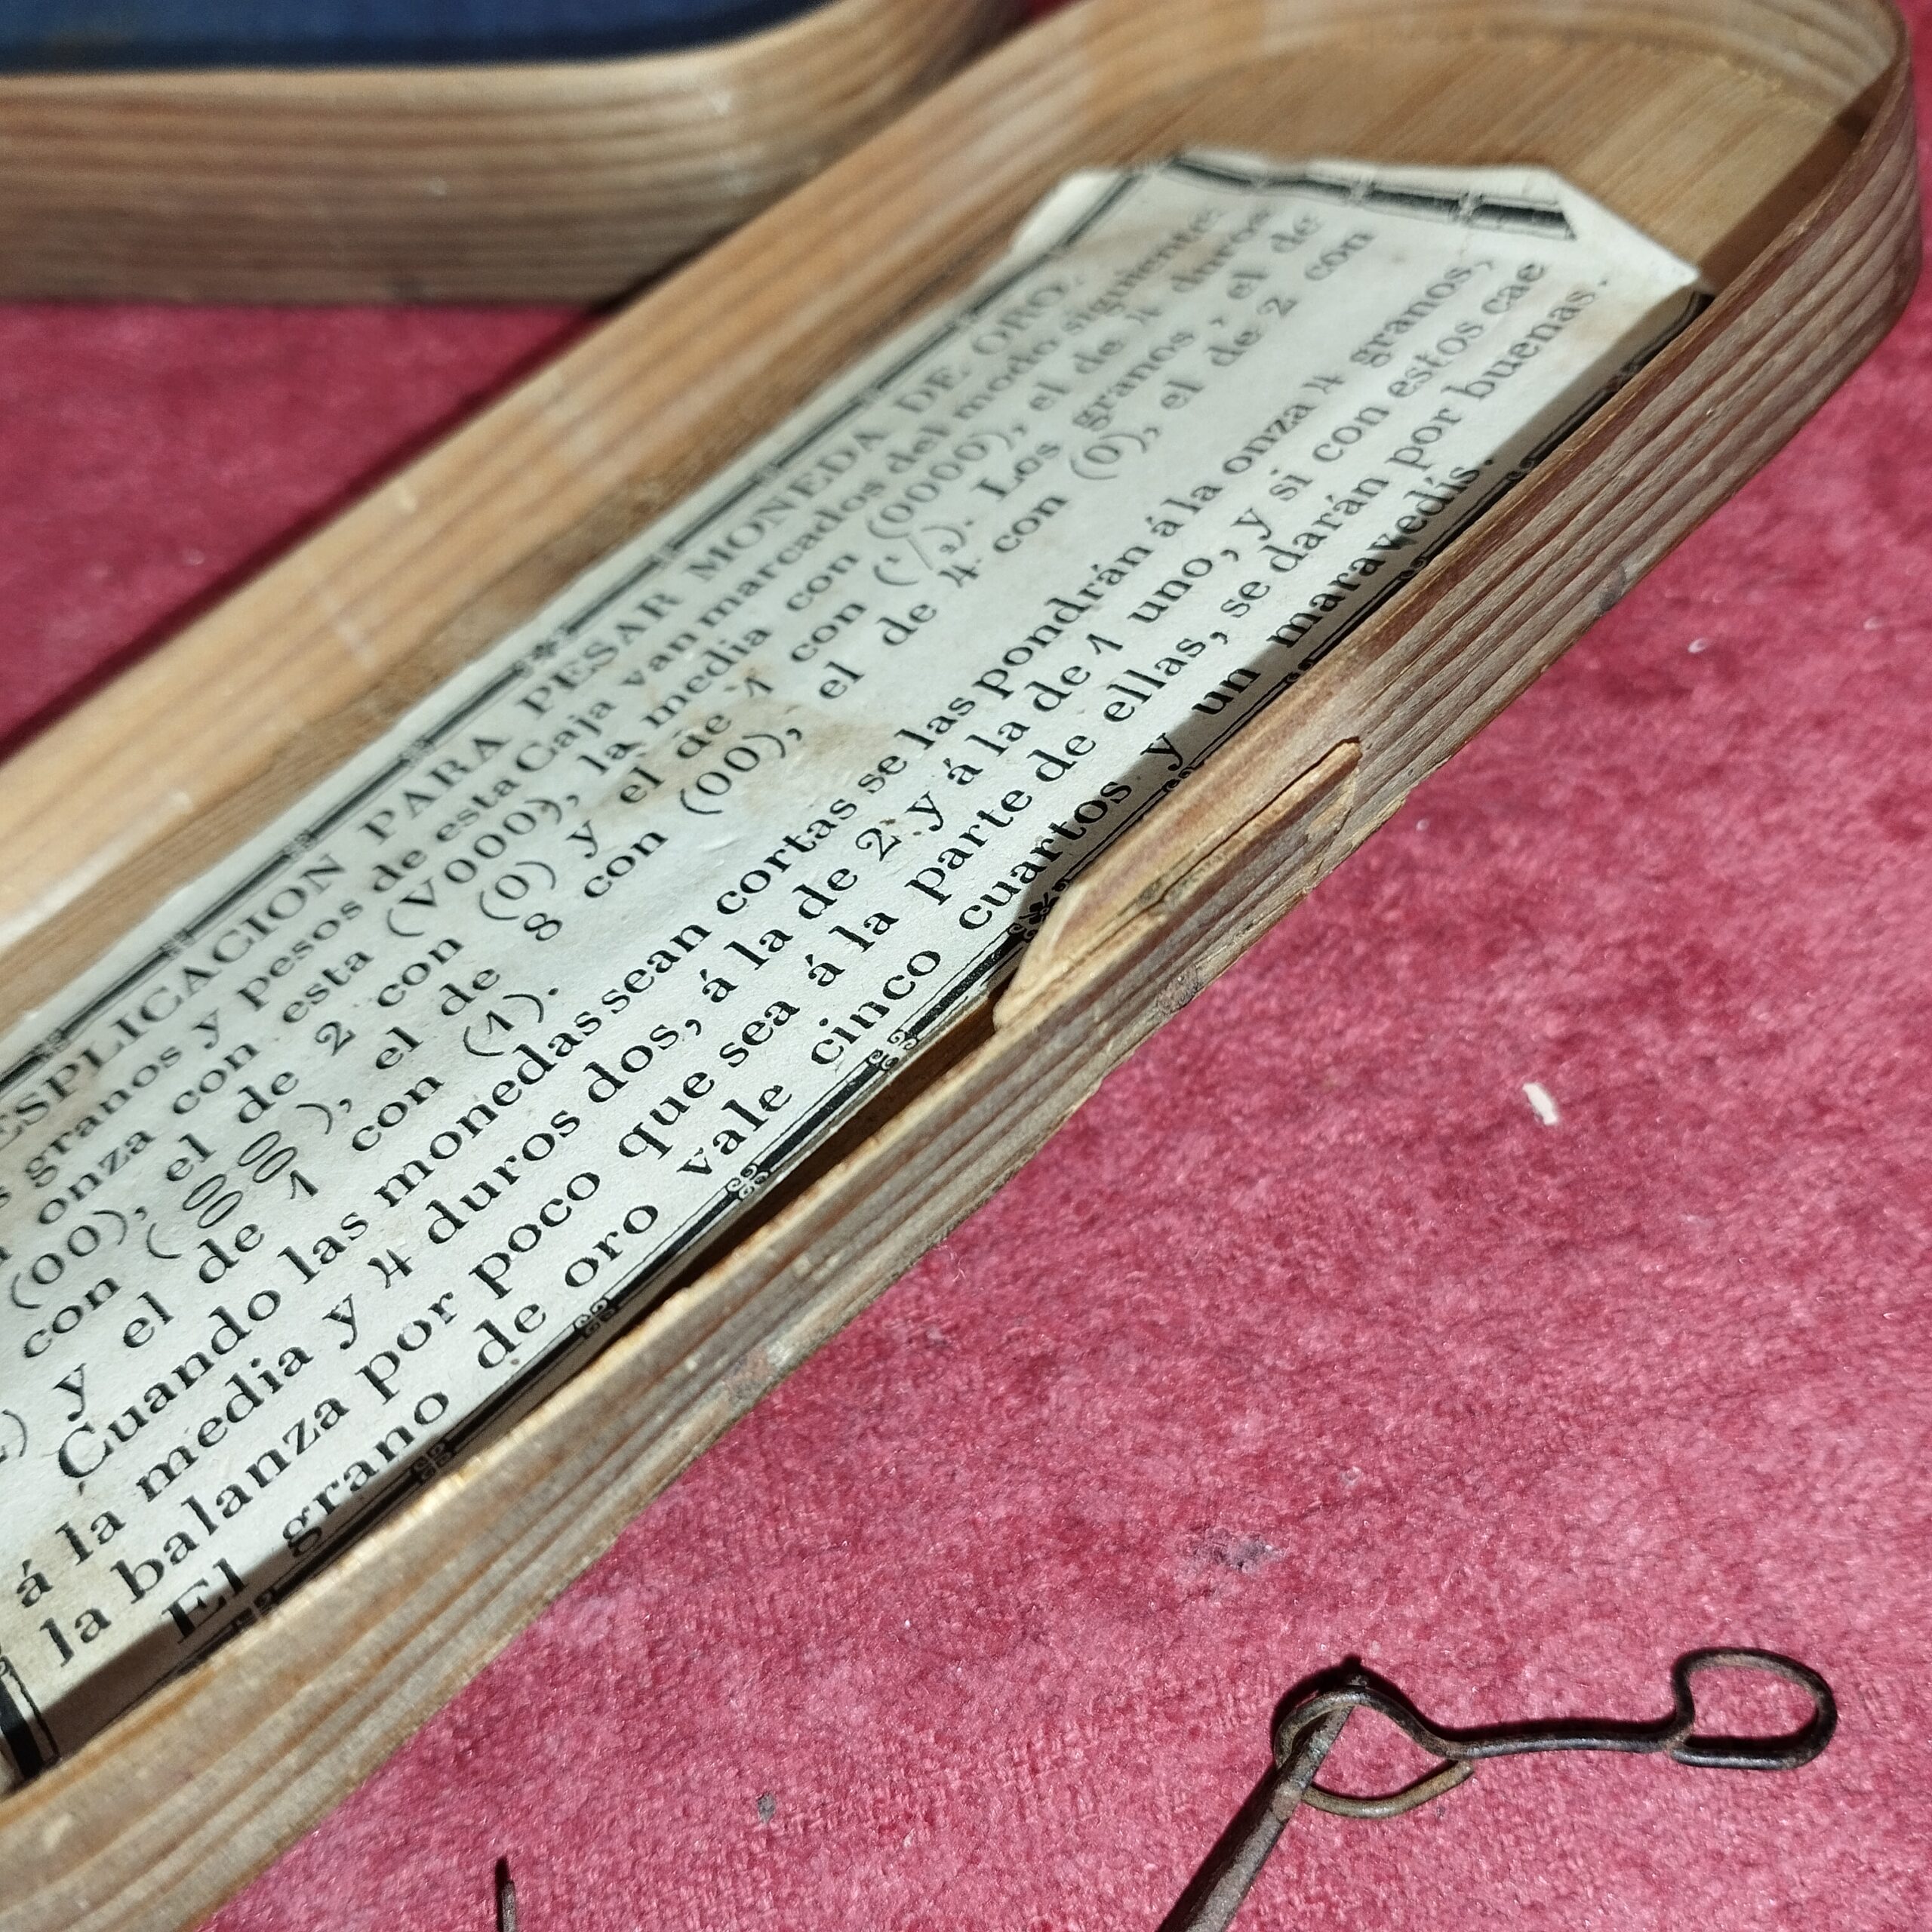 ESPLICACION PARA PESAR MONEDA DE ORO.
granos y pesos de esta Caja van marcados del modo siguiente:
onza con esta (V000), la media con (0000), el de 4 duros
(00), el de 2 con (0) y el de 1 con (1/2). Los granos, el de
con (0000), el de 8 con (00), el de 4 con (0), el de 2 con
y el de 1 con (1).
Cuando las monedas sean cortas se las pondrán á la onza 4 granos,
á la media y 4 duros dos, á la de 2 y á la de 1 uno, y si con estos cae
la balanza por poco que sea á la parte de ellas, se darán por buenas.
El grano de oro vale cinco cuartos y un maravedís.